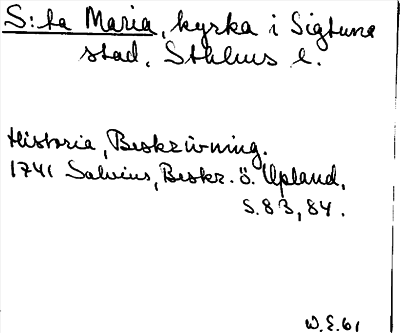 S:ta Maria, kyrka i Sigtuna
stad, Sthlms l.
Historia, Beskrivning.
1741 Salvius, Beskr. ö. Upland,
S. 83, 84.
W.E. 61